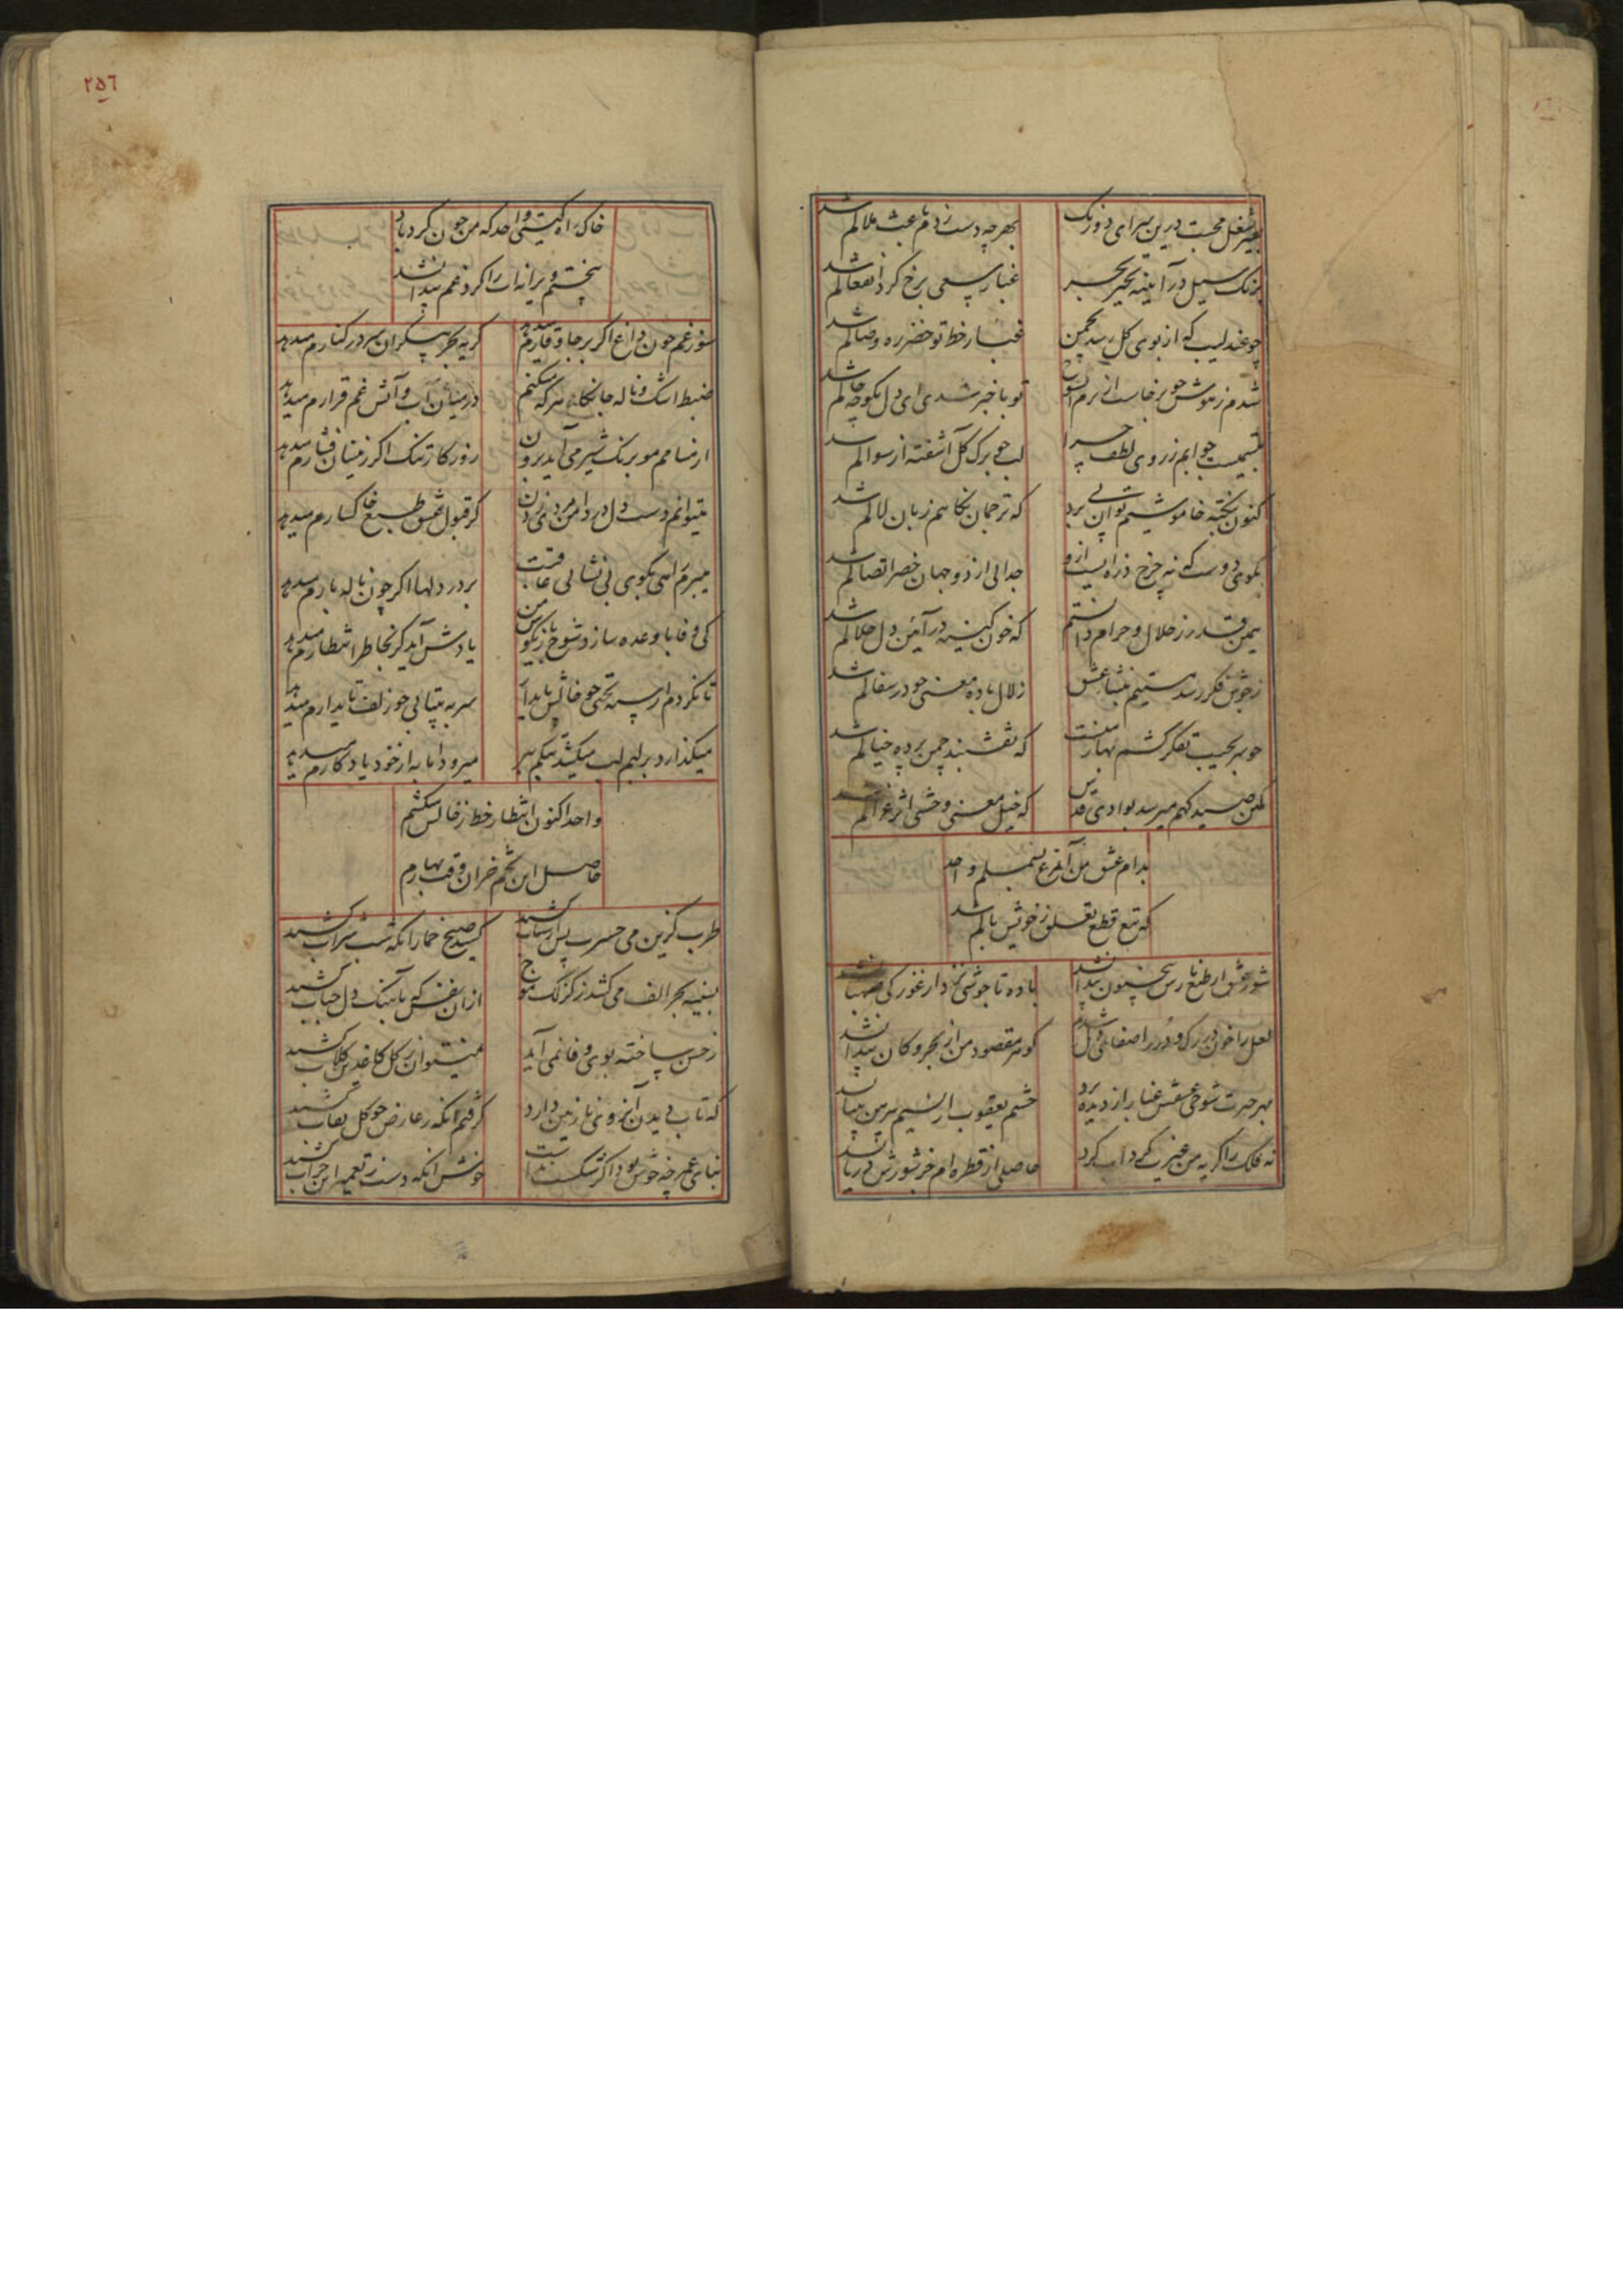 بغیر شغل محبت درین سرای دو رنگ بهرچه دست زدم باعث ملالم شد
برنگ سیل در آیینه تحیر غبار سعی برخ کرد انفعالم شد
چو عندلیب که از بوی کل رسد بچمن غبار خط تو خضر ره وصالم شد
شدم ز هوش چو برخاست از برم تو با خبر شدی ای دل بکو چه حالم شد
تبسمیست جوابم ز روی لطف چرا لب چو برک کل آشفته از سوالم شد
کنون بنکته خاموشیم توان پی برد که ترجمان نکاهم زبان لالم شد
بکوی دوست که نه چرخ ذره ایست ازو جدائی از دو جهان خضر اتصالم شد
همین قدر ز حلال و حرام دانستم که خون کینه در آیین دل حلالم شد
ز جوش فکر رسد مستیم بنشاء عشق زلال باده معنی چو در سفالم شد
چو سر بجیب تفکر کشم بهار منست که نقشبند چمن پرده خیالم شد
کمن صید کهم میرسد بوادی قدس که خیل معنی وحشی اثر غزالم شد
بدام عشق من آن مرغ بسملم واحد
که تیغ قطع تعلق ز خویش بالم شد
شور عشق از طبع نارس بی جنون پیدا نشد باده تا جوشی نزد از غوره کی صهبا نشد
لعل را خون در رک و در را صفا در دل کوهر مقصود من از بحر و کان پیدا نشد
بهر حیرت شوخی عشقش غبار از دیده برد چشم یعقوب از نسیم پیرهن بینا نشد
نه فلک را کریه من غیر یک کرداب کرد حاصلی از قطره ام جز شورش دریا نشد
٢٥٦
خاک راه کیستی واحد که من چون کردباد
بیختم ویرانه ات را کرد غم پیدا نشد
سوز غم چون داغ اکر بر جا وقارم میدهد کریه بحر بیکران سر در کنارم میدهد
ضبط اشک و ناله جانکاه هر که میکنم در میان آب و آتش غم قرارم میدهد
از مسامم مو برنک شیر می آید برون روزکار تنک اکر زینسان فشارم میدهد
میتوانم دست دل در دامن مردی زدن کر قبول فیض طبع خاکسارم میدهد
میبرم راهی بکوی بی نشانی عاقبت بر در دلها اکر چون ناله بارم میدهد
کی وفا با وعده سازد شوخ بازیکوی من یادش آید کر بخاطر انتظارم میدهد
تا نکردم از سیه بختی چو خالش پایدار سر به بیتابی چو زلف تابدارم میدهد
میکذارد بر لبم لب میکشد تنکم ببر میرود اما به از خود یادکارم میدهد
واحد اکنون انتظار خط ز خالش میکشم
حاصل این تخم خزان وقت بهارم میدهد
طرب کزین می حسرت پس از شباب کشید کشید صبح خمار آنکه شب شراب کشید
بسینه بحر الف می کشد ز کزلک موج از آن نفس که باهنک دل حباب کشید
ز حسن ساخته بوی وفا نمی آید نمیتوان ز کل کاغذین کلاب کشید
که تاب دیدن آن روی نازنین دارد کرفتم آنکه ز عارض چو کل نقاب کشید
بنای عمر چه خوش بود اکر شکست نداشت خوش آنکه دست ز تعمیر این خراب کشید